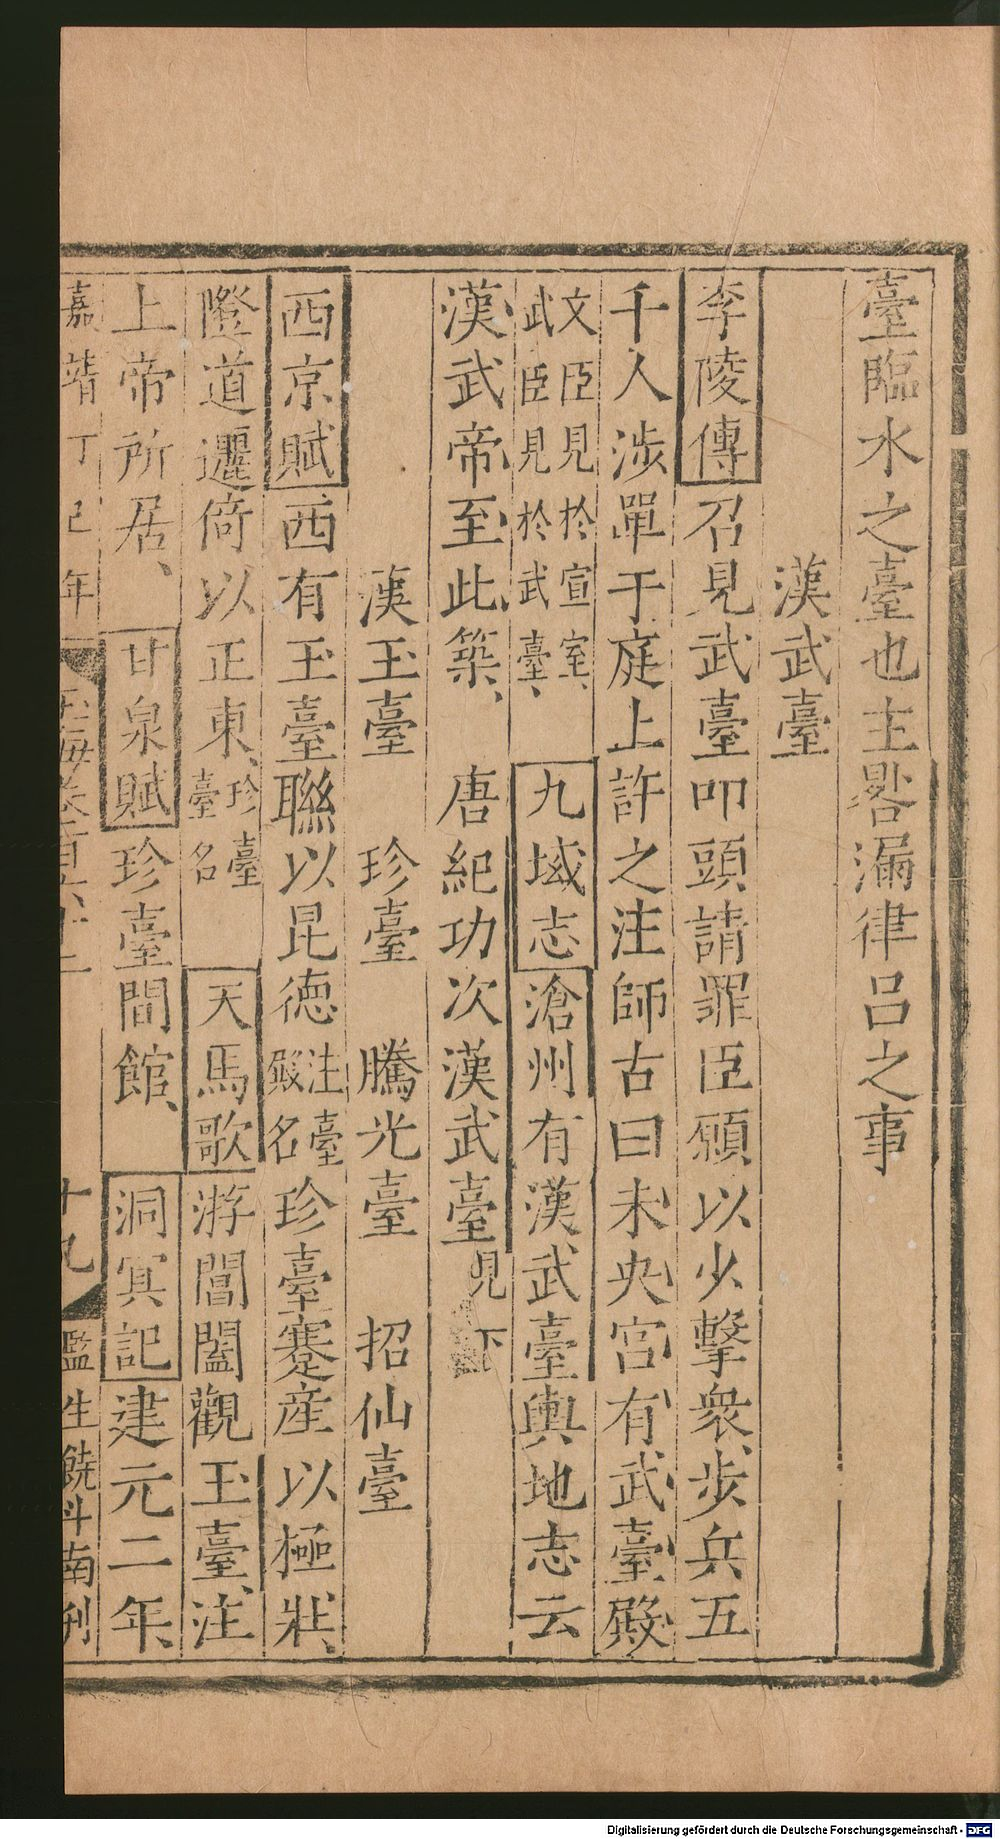 臺臨水之臺也主晷漏律呂之事
漢武臺
李陵傳召見武臺叩頭請罪臣願以少擊衆步兵五
千人涉單于庭上許之注師古曰未央宮有武臺殿
文臣見於宣室、
武臣見於武臺、
九域志滄州有漢武臺輿地志云
漢武帝至此築、唐紀功次漢武臺見下
漢玉臺 珍臺 騰光臺 招仙臺
西京賦西有玉臺聯以昆德注臺殿名珍臺蹇産以極壯、
隥道邐倚以正東、珍臺臺名天馬歌游閶闔觀玉臺注
上帝所居、甘泉賦珍臺閒館、洞冥記建元二年、
嘉靖丁巳年
玉海卷一百六十二
十九
監生饒斗南刊
Digitalisierung gefördert durch die Deutsche Forschungsgemeinschaft - DFG